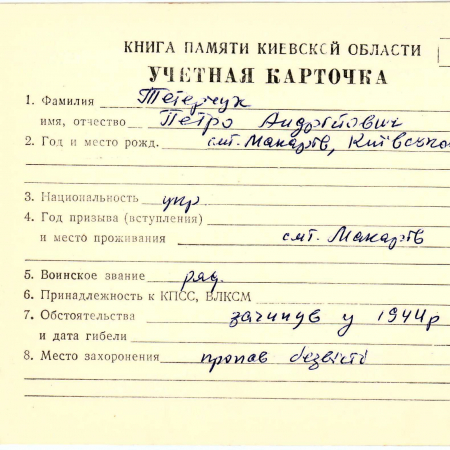 КНИГА ПАМЯТИ КИЕВСКОЙ ОБЛАСТИ
УЧЕТНАЯ КАРТОЧКА
1. Фамилия Тетерчук
имя, отчество Петро Андрійович
2. Год и место рожд. смт. Макарів, Київської
3. Национальность укр
4. Год призыва (вступления)
и место проживания смт. Макарів
5. Воинское звание ряд.
6. Принадлежность к КПСС, ВЛКСМ
7. Обстоятельства загинув у 1944р
и дата гибели
8. Место захоронения пропав безвісті